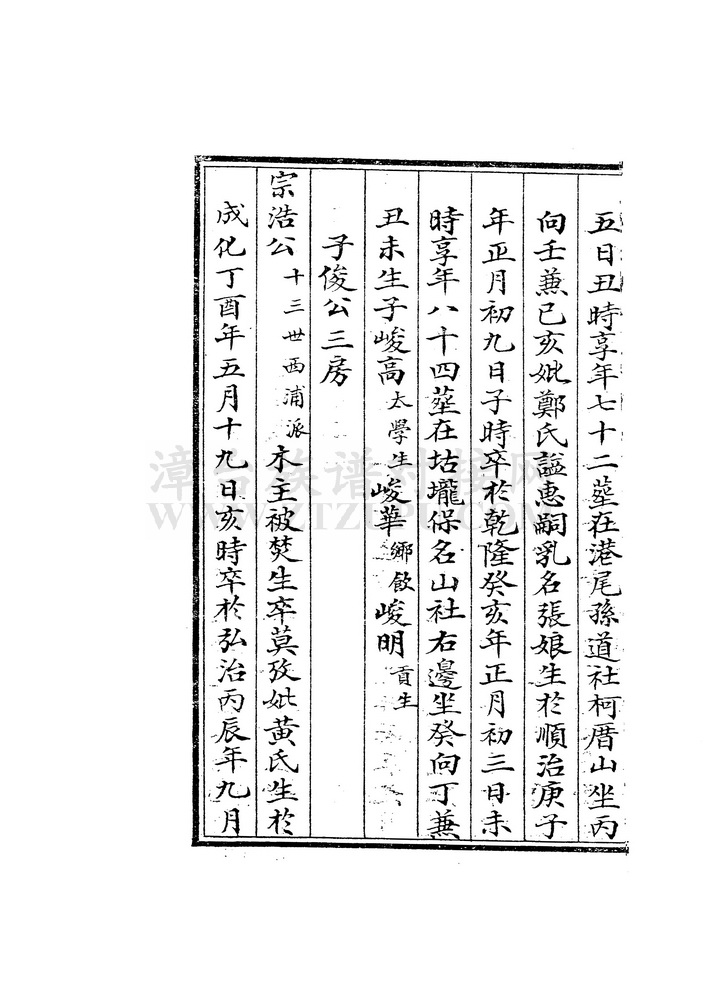 五日丑時享年七十二塟在港尾孫道社柯厝山坐丙
向壬蕪已亥妣鄭氏謚惠嗣乳名張娘生於順治庚子
年正月初九日子時卒於乾隆癸亥年正月初三日未
時享年八十四塟在坫壠保名山社右邊坐癸向丁蕪
丑未生子峻高太學生峻華鄉飲峻明貢生
子俊公三房
宗浩公十三世西浦派木主被焚生卒莫攷妣黃氏生於
成化丁酉年五月十九日亥時卒於弘治丙辰年九月
WWW.ZTZUPU.COM